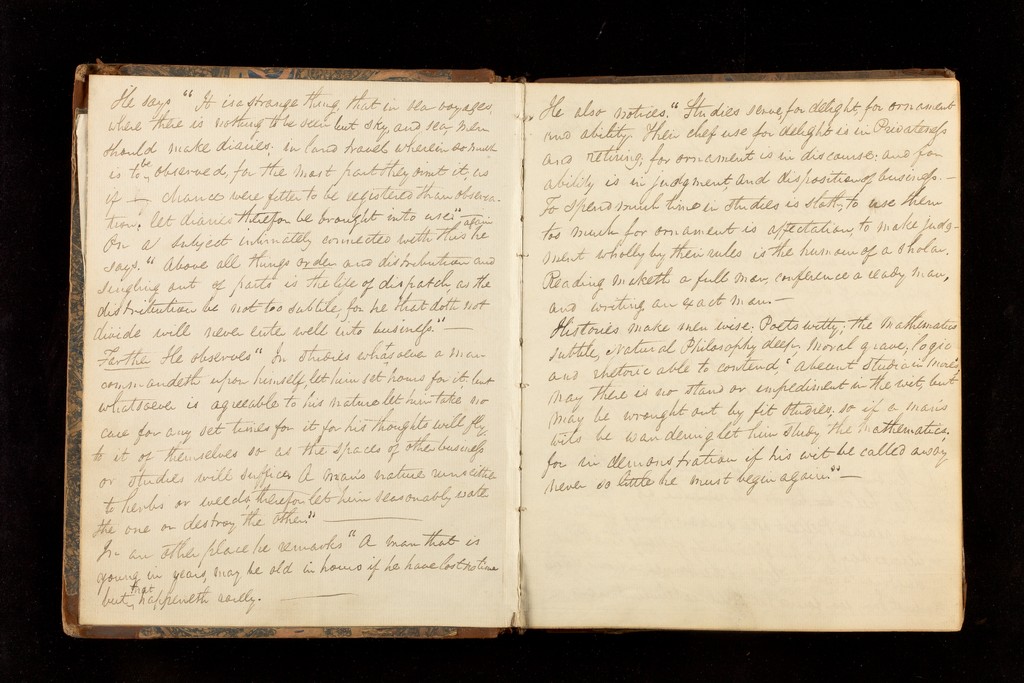 He says "It is a strange thing, that in sea voyages,
where there is nothing to be seen but sky, and sea, men
should make diaries; in land travel wherein so much
is to be observed, for the most part they omit it, as
if chance were fitter to be registered than observa-
tion; let diaries therefor be brought into use" again
On a subject intimately connected with this he
says. "Above all things order and distribution and
singling out of parts is the life of dispatch, as the
distribution be not too subtile, for he that doth not
divide will never enter well into business." —
Farther He observes "In studies whatsoever a man
commandeth upon himself, let him set hours for it, but
whatsoever is agreeable to his nature let him take no
care for any set times for it for his thoughts will fly
to it of themselves so as the spaces of other business
or studies will suffice. A man's nature runs either
to herbs or weeds, therefor let him seasonably water
the one or destroy the other" —
In an other place he remarks "A man that is
young in years, may be old in hours if he have lost no time
but that happeneth rarely. —
He also notices. "Studies serve for delight, for ornament
and ability. Their chef use for delight is in Privateness
and retiring, for ornament is in discourse; and for
ability is in judgment, and disposition of business. —
To spend much time in studies is sloth; to use them
too much for ornament is affectation, to make judg-
ment wholly by their rules is the humour of a Scholar.
Reading maketh a full man, conference a ready man,
and writing an exact man —
Histories make men wise; Poets witty; the Mathematics
subtile, Natural Philosophy deep, moral grave, logic
and rhetoric able to contend, "abeunt studia in mores,
may there is no stand or impediment in the wit, but
may be wrought out by fit studies; so if a man's
wits be wandering let him study the mathematics;
for in demonstration if his wit be called away
never so little he must begin again." —